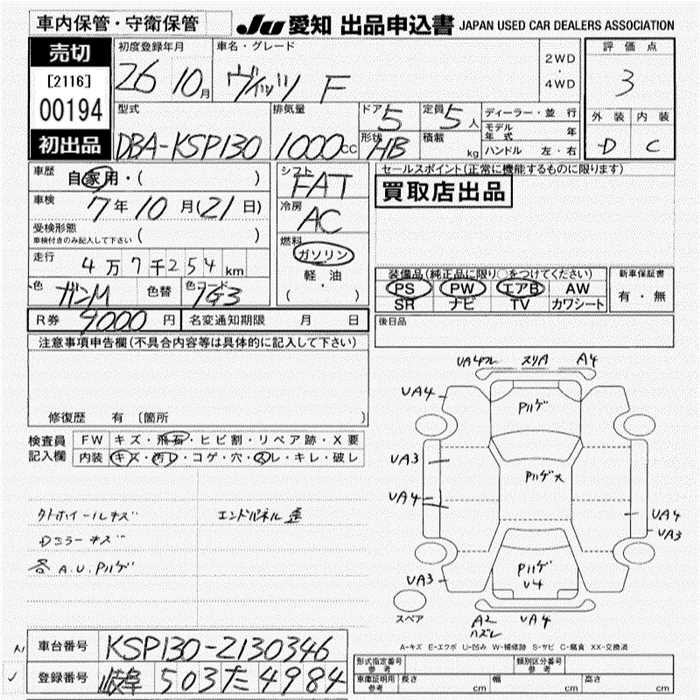 車内保管・守衛保管
JU 愛知 出品申込書 JAPAN USED CAR DEALERS ASSOCIATION
売切
[2116]
00194
初出品
初度登録年月 車名・グレード
26 10月 ヴィッツ F
2WD
・
4WD
評価点
3
外装 内装
D C
型式 排気量 ドア 定員
DBA-KSP130 1000cc 5 5人
形状 積載
HB kg
ディーラー・並行
モデル年式 年
ハンドル 左・右
車歴 自家用・( )
車検 7年10月(21日)
受検形態
車検付きのみ記入して下さい ( )
走行 4万7千254km
色 ガンM 色替 色コード 1G3
シフト FAT
冷房 AC
燃料
ガソリン
軽・油
( ・ )
セールスポイント(正常に機能するものに限ります)
買取店出品
装備品(純正品に限り○をつけてください)
PS PW エアB AW
SR ナビ TV カワシート
新車保証書
有・無
後日品
R券 9000円 名変通知期限 月 日
注意事項申告欄(不具合内容等は具体的に記入して下さい)
修復歴 有 〔箇所 〕
検査員記入欄
FW キズ・飛石・ヒビ割・リペア跡・X要
内装 キズ・汚レ・コゲ・穴・スレ・キレ・破レ
クトホイールキズ エンドパネル歪
Dミラーキズ
各A.U.Pハゲ
UA4フレ スリA A4
UA4
Pハゲ
UA3
Pハゲ大
UA4
UA4
UA3
UA3
Pハゲ
U4
スペア
A2 UA4
ハズレ
A-キズ E-エクボ U-凹み W-補修跡 S-サビ C-腐食 XX-交換済
車台番号 KSP130-2130346
登録番号 岐阜 503 た 4984
形式指定番号
参考
類別区分番号
参考
車庫証明用
参考
長さ cm 幅 cm 高さ cm